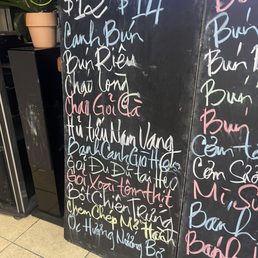 $12 $14
Canh Bún
Bún Riêu
Cháo Lòng
Cháo Gỏi Gà
Hủ tiếu Nam Vang
Bánh Canh Giò Heo
Gỏi Đu Đủ Tai Heo
Gỏi Xoài tôm thịt
Bột Chiên Trứng
Chem Chép Mỡ Hành
Ốc Hương Nướng Bơ
Bún
Bún
Bún
Bún
Cơm
Cơm
Mì,
Bánh
Bánh